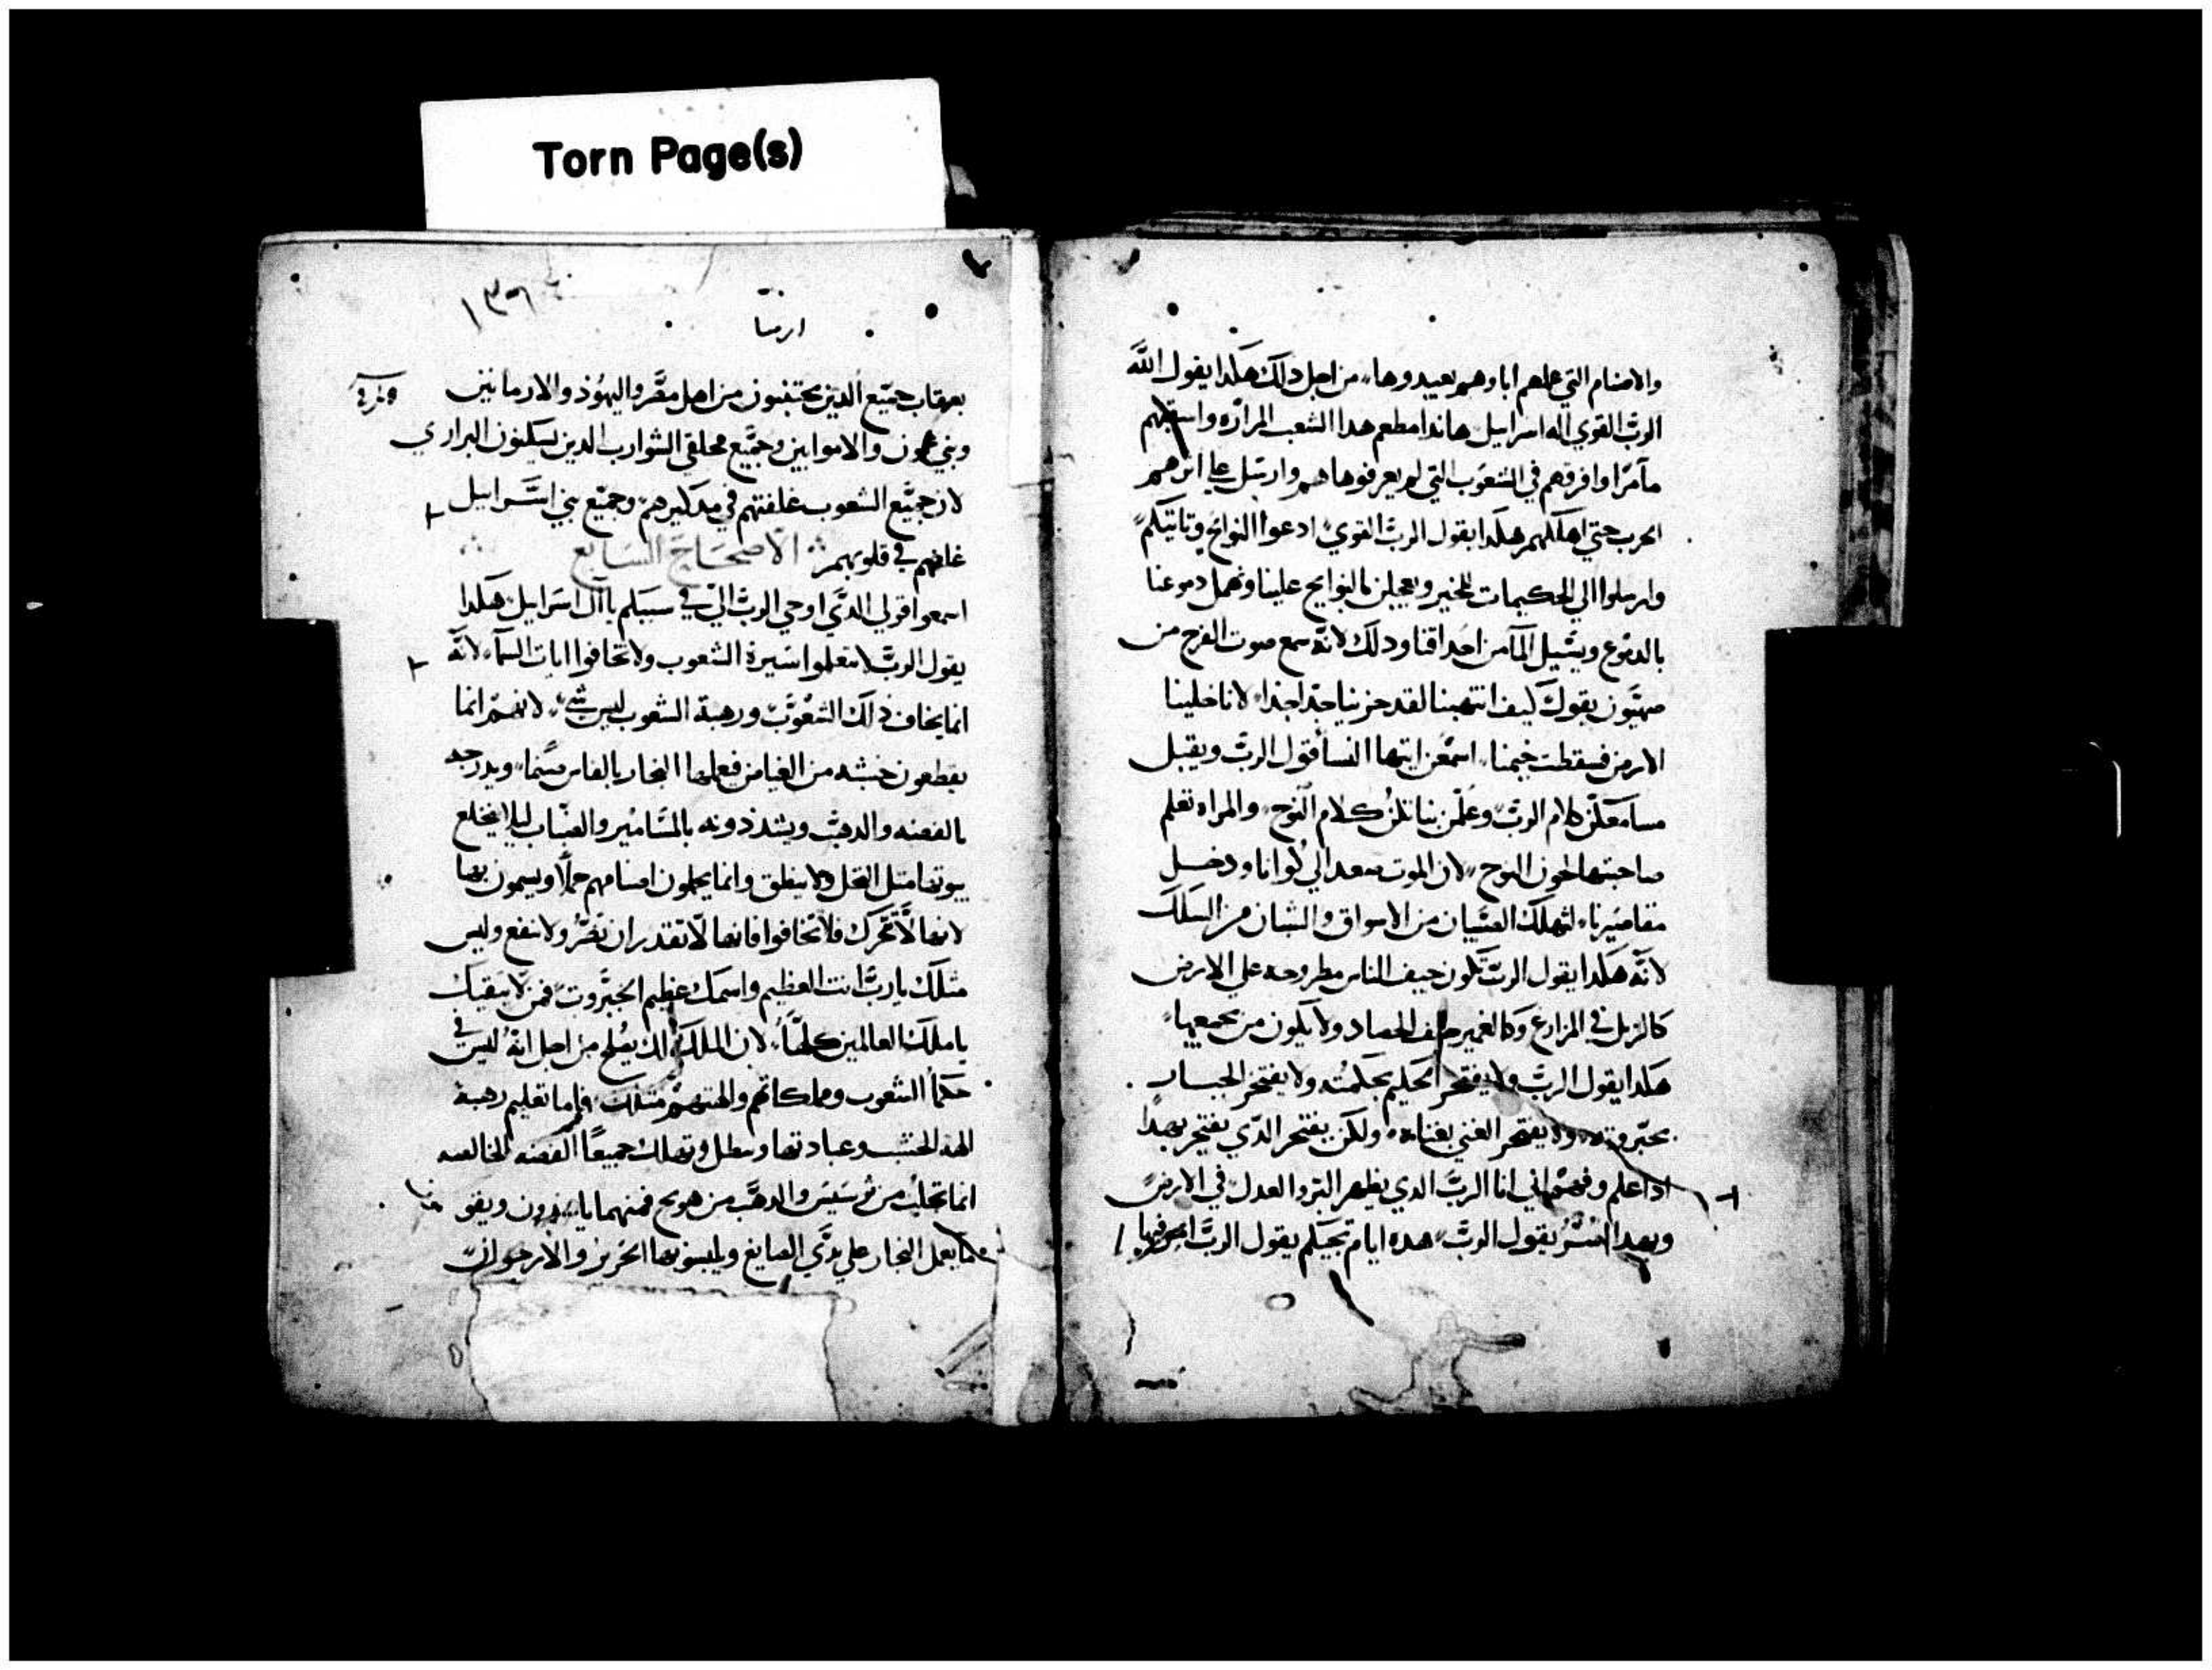 Torn Page(s)
والاصنام التي علمهم اباوهم يعبدوها من اجل دلك هكدا يقول الله
الرب القوي اله اسراييل هاندا مطعم هدا الشعب المراره واسقيهم
مآ مرا وافرقهم في الشعوب التي لم يعرفوها هم وارسل علي اثرهم
الحرب حتي اهلكهم هكدا يقول الرب القوي ادعوا النوايح وتاتيكم
وارسلوا الي الحكيمات للخير ويعجلن بالنوايح علينا وتهمل دموعنا
بالدموع ويسيل المآ من احداقنا ودلك لانه سمع صوت الفرح من
صهيون يقول كيف انتهبنا لقد حزينا جدا جدا لانا خلينا
الارض فسقطت خيمنا اسمعن ايتها النسا قول الرب ويقبل
مسامعكن كلام الرب وعلمن بناتكن كلام النوح والمراه تعلم
صاحبتها لحون النوح لان الموت صعد الي كوانا ودخل
مقاصيرنا لتهلك الصبيان من الاسواق والشبان من السكك
لانه هكدا يقول الرب تكون جيف الناس مطروحه علي الارض
كالزبل في المزارع وكالغمير خلف الحصاد ولا يكون من يجمعها
هكدا يقول الرب ولا يفتخر الحكيم بحكمته ولا يفتخر الجبار
بجبروته ولا يفتخر الغني بغناه ولكن يفتخر الدي يفتخر بهدا
ادا علم وفهم اني انا الرب الدي يظهر البر والعدل في الارض
وبهدا اسر يقول الرب هده ايام تجيكم يقول الرب امر فيها
١٣٦
ارميا
بعقاب جميع الدين يختتنون من اهل مصر واليهود والادرمانيين
وبني عمون والاموابين وجميع محلقي الشوارب الدين يسكنون البراري
لان جميع الشعوب غلفتهم في مداكيرهم وجميع بني اسراييل
غلفهم في قلوبهم الاصحاح السابع
اسمعوا قولي الدي اوحي الرب الي في سببكم يا آل اسراييل هكدا
يقول الرب لا تتعلموا سيرة الشعوب ولا تخافوا ايات السمآ لانه
انما يخاف دلك الشعوب ورهبة الشعوب ليس شي لانهم انما
يقطعون خشبه من الغياض فيعملها النجار بالفاس صنما ويدرجه
بالفضه والدهب ويشددونه بالمسامير والضباب ليلا ينخلع
بيوتها مثل النخل ولا ينطق وانما يحملون اصنامهم حملا ويسمون بها
لانها لا تتحرك فلا تخافوا فانها لا تقدر ان تضر ولا تنفع وليس
مثلك يا رب انت العظيم واسمك عظيم الجبروت فمن لا يتقيك
يا ملك العالمين كلها لان الملك لك يصلح من اجل انه ليس في
حكمآ الشعوب وملكاتهم والهتهم مثلك فاما تعليم رهبة
الهه الخشب وعبادتها وتبطل وتهلك جميعا الفضه الخالصه
انما تجلب من ترسيس والدهب من هوبج
يعمل النجار علي يدي الصايغ ويلبسونها الحرير والارجوان